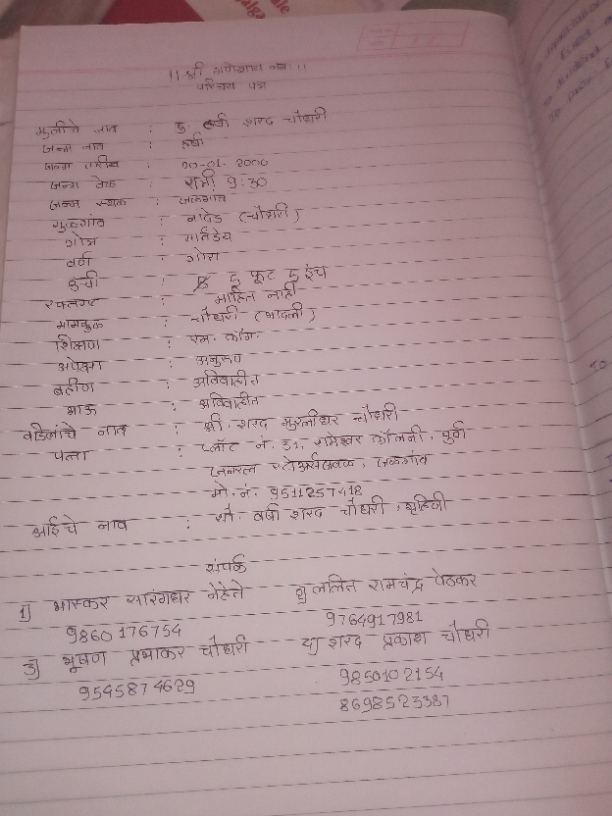 ।। श्री गणेशाय नमः ।।
परिचय पत्र
मुलीचे नाव : कु. शरद चौधरी
जन्म नाव :
जन्म तारीख : -01-2000
जन्म वेळ : रात्री 9:30
जन्म स्थळ : जळगांव
मुळगांव : नांदेड (चौधरी)
गोत्र : मार्तंडेय
वर्ण : गोरा
उंची : 5 फूट 5 इंच
रक्तगट : माहित नाही
मामकुळ : चौधरी (भादली)
शिक्षण : एम. कॉम.
अपेक्षा : अनुरूप
बहीण : अविवाहीत
भाऊ : अविवाहीत
वडिलांचे नाव : श्री. शरद मुरलीधर चौधरी
पत्ता : प्लॉट नं. 31, रामेश्वर कॉलनी,
जनरल जळगांव
मो. नं. 9511257418
आईचे नाव : सौ. वर्षा शरद चौधरी, गृहिणी
संपर्क
1) भास्कर सारंगधर नेहेते ललित रामचंद्र पेठकर
9860176754 9764917981
3) भूषण प्रभाकर चौधरी शरद प्रकाश चौधरी
9545874629 9850102154
8698523387